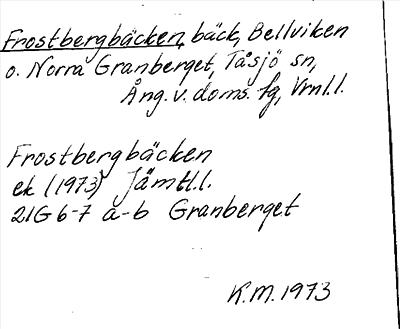 Frostbergbäcken, bäck, Bellviken
o. Norra Granberget, Tåsjö sn,
Ång. v. doms. fg, Vrnl.l.
Frostbergbäcken
ek (1973) Jämtl.l.
21G 6-7 a-b Granberget
K.M. 1973